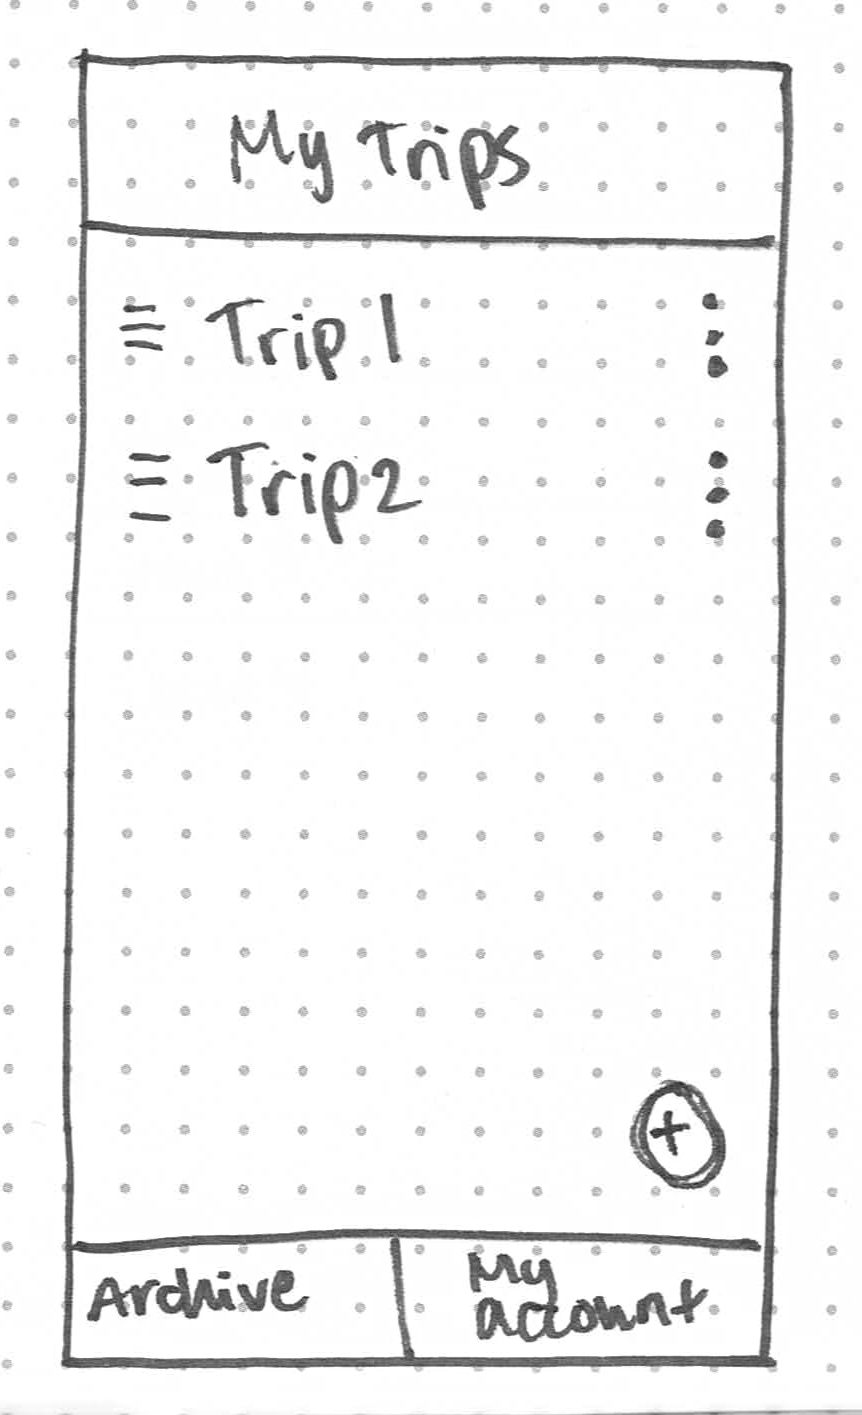 My Trips
Trip 1
Trip 2
+
Archive
My
account